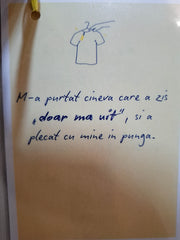 M-a purtat cineva care a zis
„doar mă uit", și a
plecat cu mine în pungă.